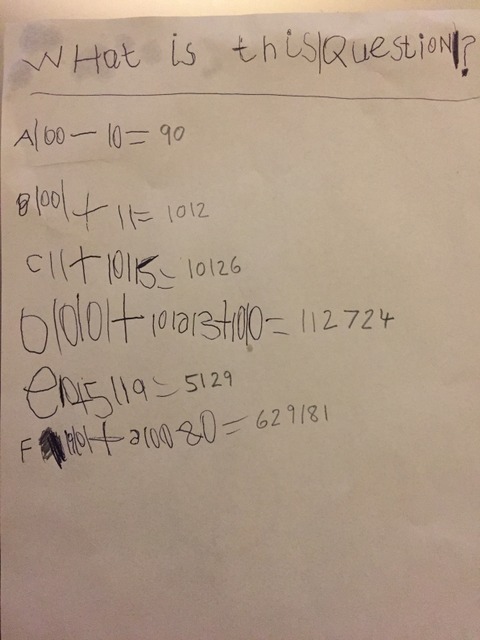 What is this Question?
A 100 - 10 = 90
B 1001 + 11 = 1012
C 11 + 10115 = 10126
D 10101 + 101213 + 1010 = 112724
= 5129
= 629181